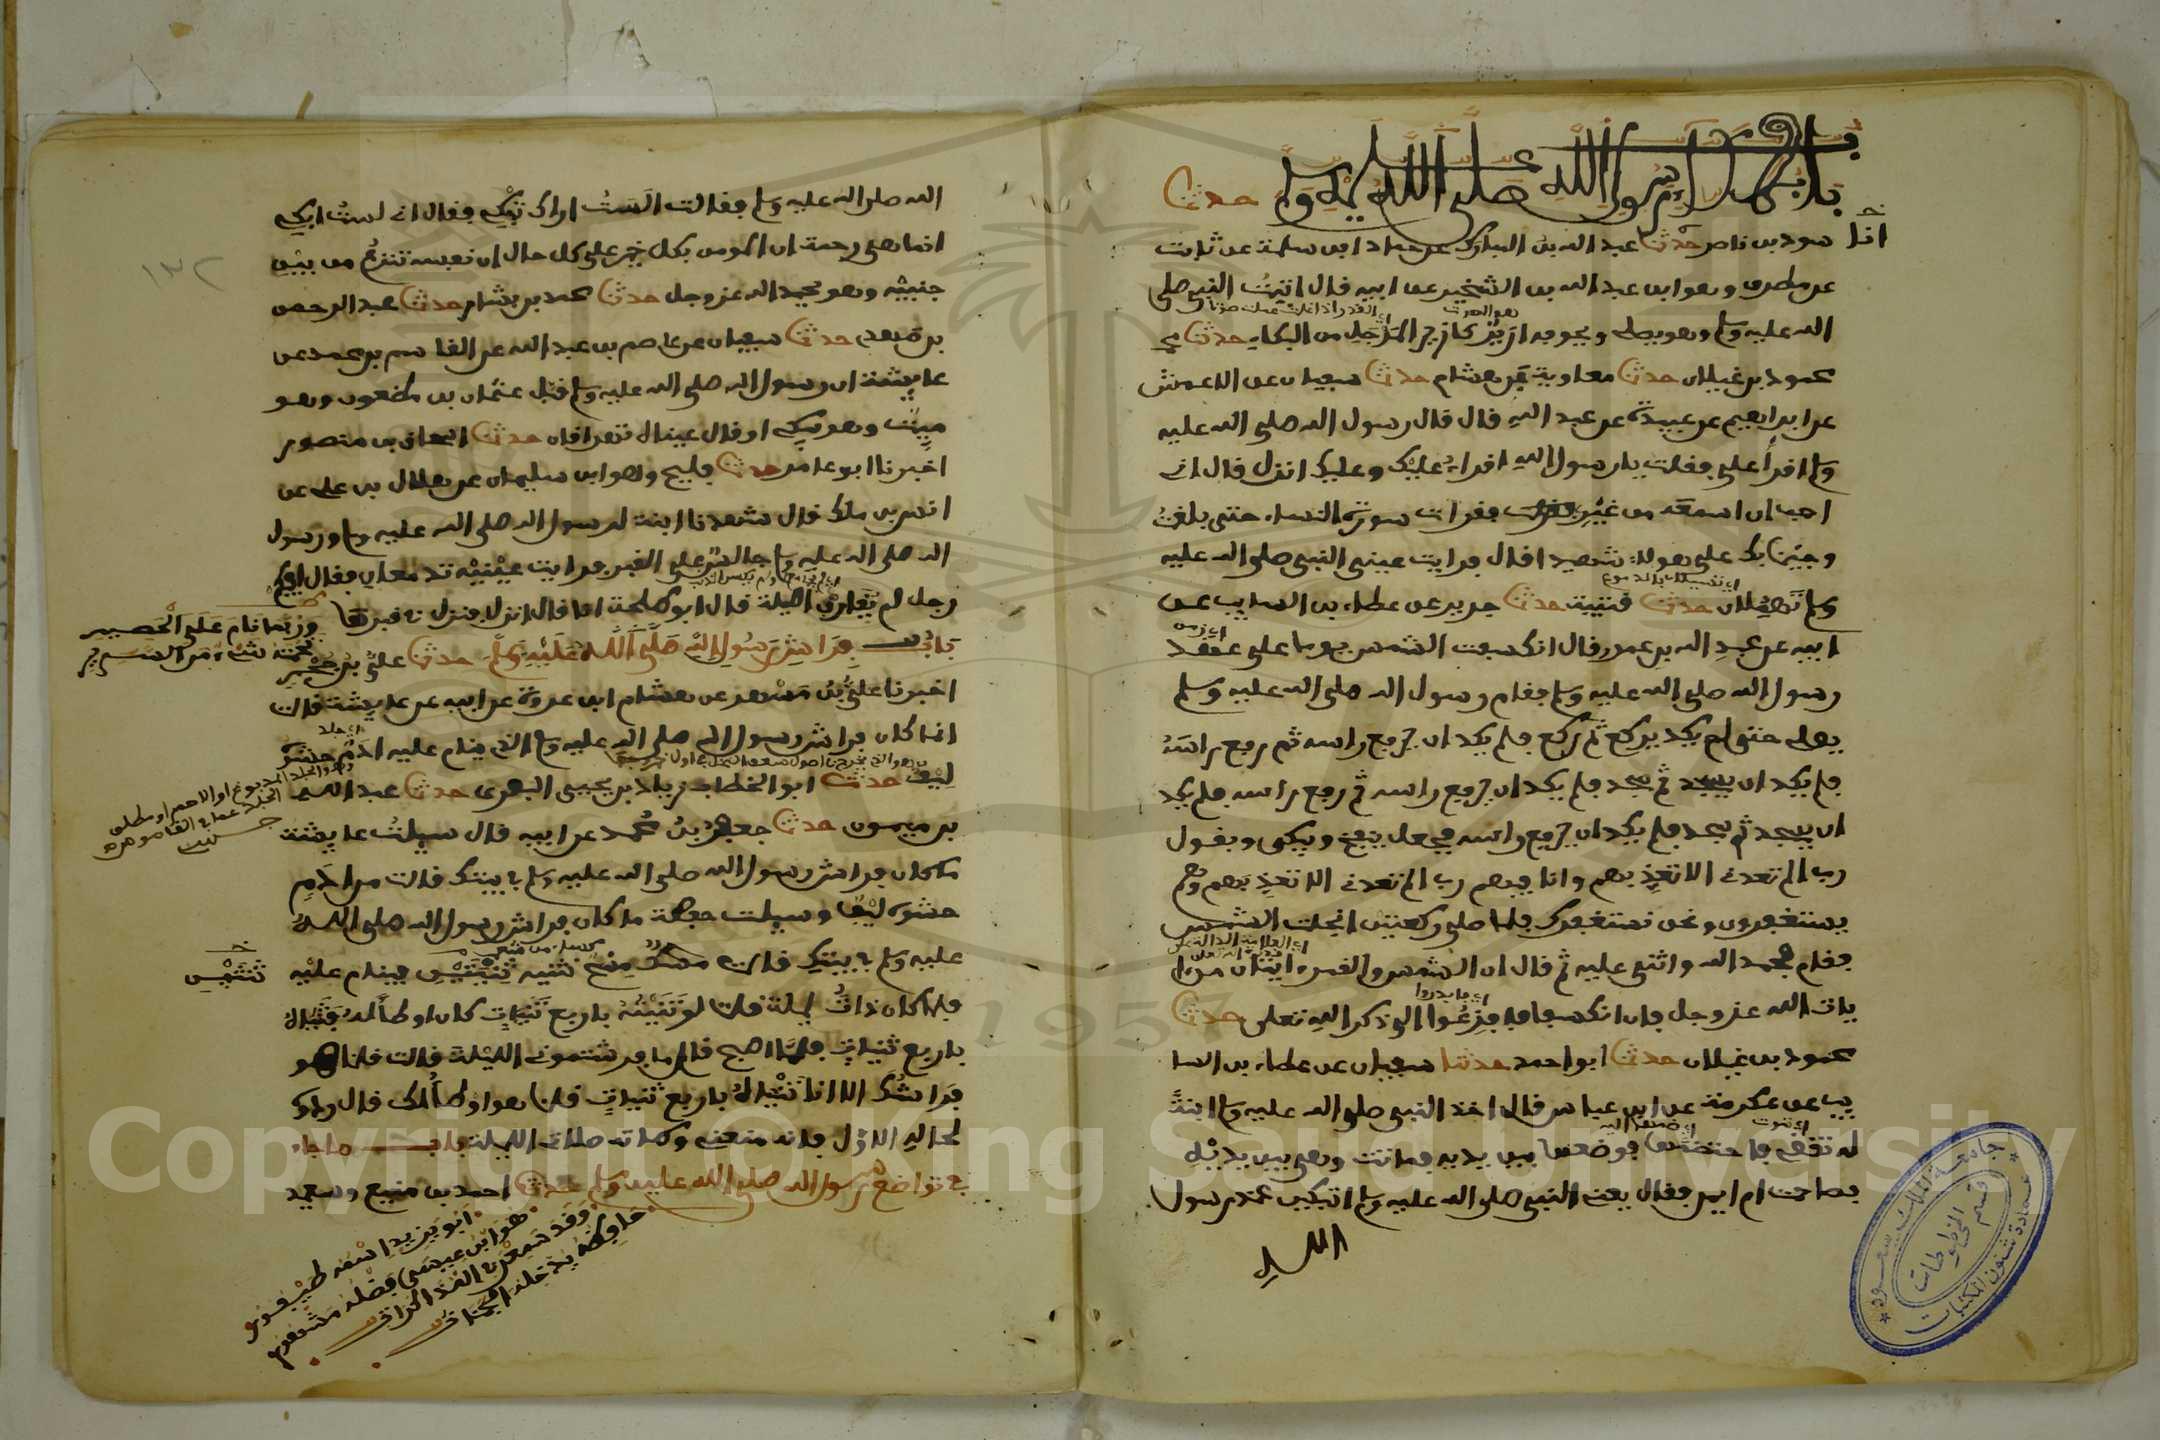 باب بكاء رسول الله صلى الله عليه وسلم حدثنا
سويد بن نصر حدثنا عبد الله بن المبارك عن حماد ابن سلمة عن ثابت
انا
عن مطرف وهو ابن عبد الله بن الشخير عن ابيه قال اتيت النبي صلى
الله عليه وسلم وهو يصلي ولجوفه ازيز كازيز المرجل من البكاء حدثنا
محمود بن غيلان حدثنا معاوية بن هشام حدثنا سفيان عن الاعمش
عن ابراهيم عن عبيدة عن عبد الله قال قال رسول الله صلى الله عليه
وسلم اقرأ علي فقلت يا رسول الله اقرأ عليك وعليك انزل قال اني
احب ان اسمعه من غيري فقرات سورة النساء حتى بلغت
وجئنا بك على هولاء شهيدا قال فرايت عيني النبي صلى الله عليه
اي تسيلان بالدموع
وسلم تهملان حدثنا قتيبة حدثنا جرير عن عطاء بن السايب عن
ابيه عن عبد الله بن عمرو قال انكسفت الشمس يوما على عهد
رسول الله صلى الله عليه وسلم فقام رسول الله صلى الله عليه وسلم
يصلي حتى لم يكد يركع ثم ركع فلم يكد ان يرفع راسه ثم رفع راسه
فلم يكد ان يسجد ثم سجد فلم يكد ان يرفع راسه ثم رفع راسه فلم يكد
ان يسجد ثم سجد فلم يكد ان يرفع راسه فجعل ينفخ ويبكي ويقول
رب الم تعدني الا تعذبهم وانا فيهم رب الم تعدني الا تعذبهم وهم
يستغفرون ونحن نستغفرك فلما صلى ركعتين انجلت الشمس
فقام فحمد الله واثنى عليه ثم قال ان الشمس والقمر ايتان من ا
يات الله عز وجل فان انكسفا فافزعوا الى ذكر الله تعلى حدثنا
محمود بن غيلان حدثنا ابو احمد حدثنا سفيان عن عطاء بن السا
يب عن عكرمة عن ابن عباس قال اخذ النبي صلى الله عليه وسلم ابنة
له تقضي فاحتضنها فوضعها بين يديه فماتت وهي بين يديه
فصاحت ام ايمن فقال يعني النبي صلى الله عليه وسلم اتبكين عند رسول
الله
الله صلى الله عليه وسلم فقالت الست اراك تبكي فقال اني لست ابكي
انما هي رحمة ان المومن بكل خير على كل حال ان نفسه تنزع من بين
جنبيه وهو يحمد الله عز وجل حدثنا محمد بن بشار حدثنا عبد الرحمن
١٣٢
بن مهدي حدثنا سفيان عن عاصم بن عبد الله عن القاسم بن محمد عن
عايشة ان رسول الله صلى الله عليه وسلم قبل عثمان بن مظعون وهو
ميت وهو يبكي او قال عيناه تهراقان حدثنا اسحاق بن منصور
اخبرنا ابو عامر حدثنا فليح وهو ابن سليمان عن هلال بن علي عن
انس بن ملك قال شهدنا ابنة لرسول الله صلى الله عليه وسلم ورسول
الله صلى الله عليه وسلم جالس على القبر فرايت عينيه تدمعان فقال افيكم
رجل لم يقارف الليلة قال ابو طلحة انا قال انزل فنزل في قبرها
باب فراش رسول الله صلى الله عليه وسلم حدثنا علي بن حجر
وربما نام على الحصير
اخبرنا علي بن مسهر عن هشام ابن عروة عن ابيه عن عايشة قالت
انما كان فراش رسول الله صلى الله عليه وسلم الذي ينام عليه ادم حشوه
ليف حدثنا ابو الخطاب زياد بن يحيى البصري حدثنا عبد الله
بن ميمون حدثنا جعفر بن محمد عن ابيه قال سيلت عايشة
ما كان فراش رسول الله صلى الله عليه وسلم في بيتك قالت من ادم
حشوه ليف وسيلت حفصة ما كان فراش رسول الله صلى الله
عليه وسلم في بيتك قالت مسح نثنيه ثنيتين فينام عليه
ثنتين
فلما كان ذات ليلة قلت لو ثنيته باربع ثنيات كان اوطأ له فثنيناه
باربع ثنيات فلما اصبح قال ما فرشتموني الليلة قالت قلنا هو
فراشك الا انا ثنيناه باربع ثنيات قلنا هو اوطأ لك قال ردوه
لحاله الاول فانه منعتني وطاته صلاتي الليلة باب ما جاء
في تواضع رسول الله صلى الله عليه وسلم حدثنا احمد بن منيع وسعيد
ابو يزيد اسمه طيفور
هو ابن عيسى فضله مشهور
Copyright © King Saud University
1957
جامعة الملك سعود
قسم المخطوطات
عمادة شئون المكتبات